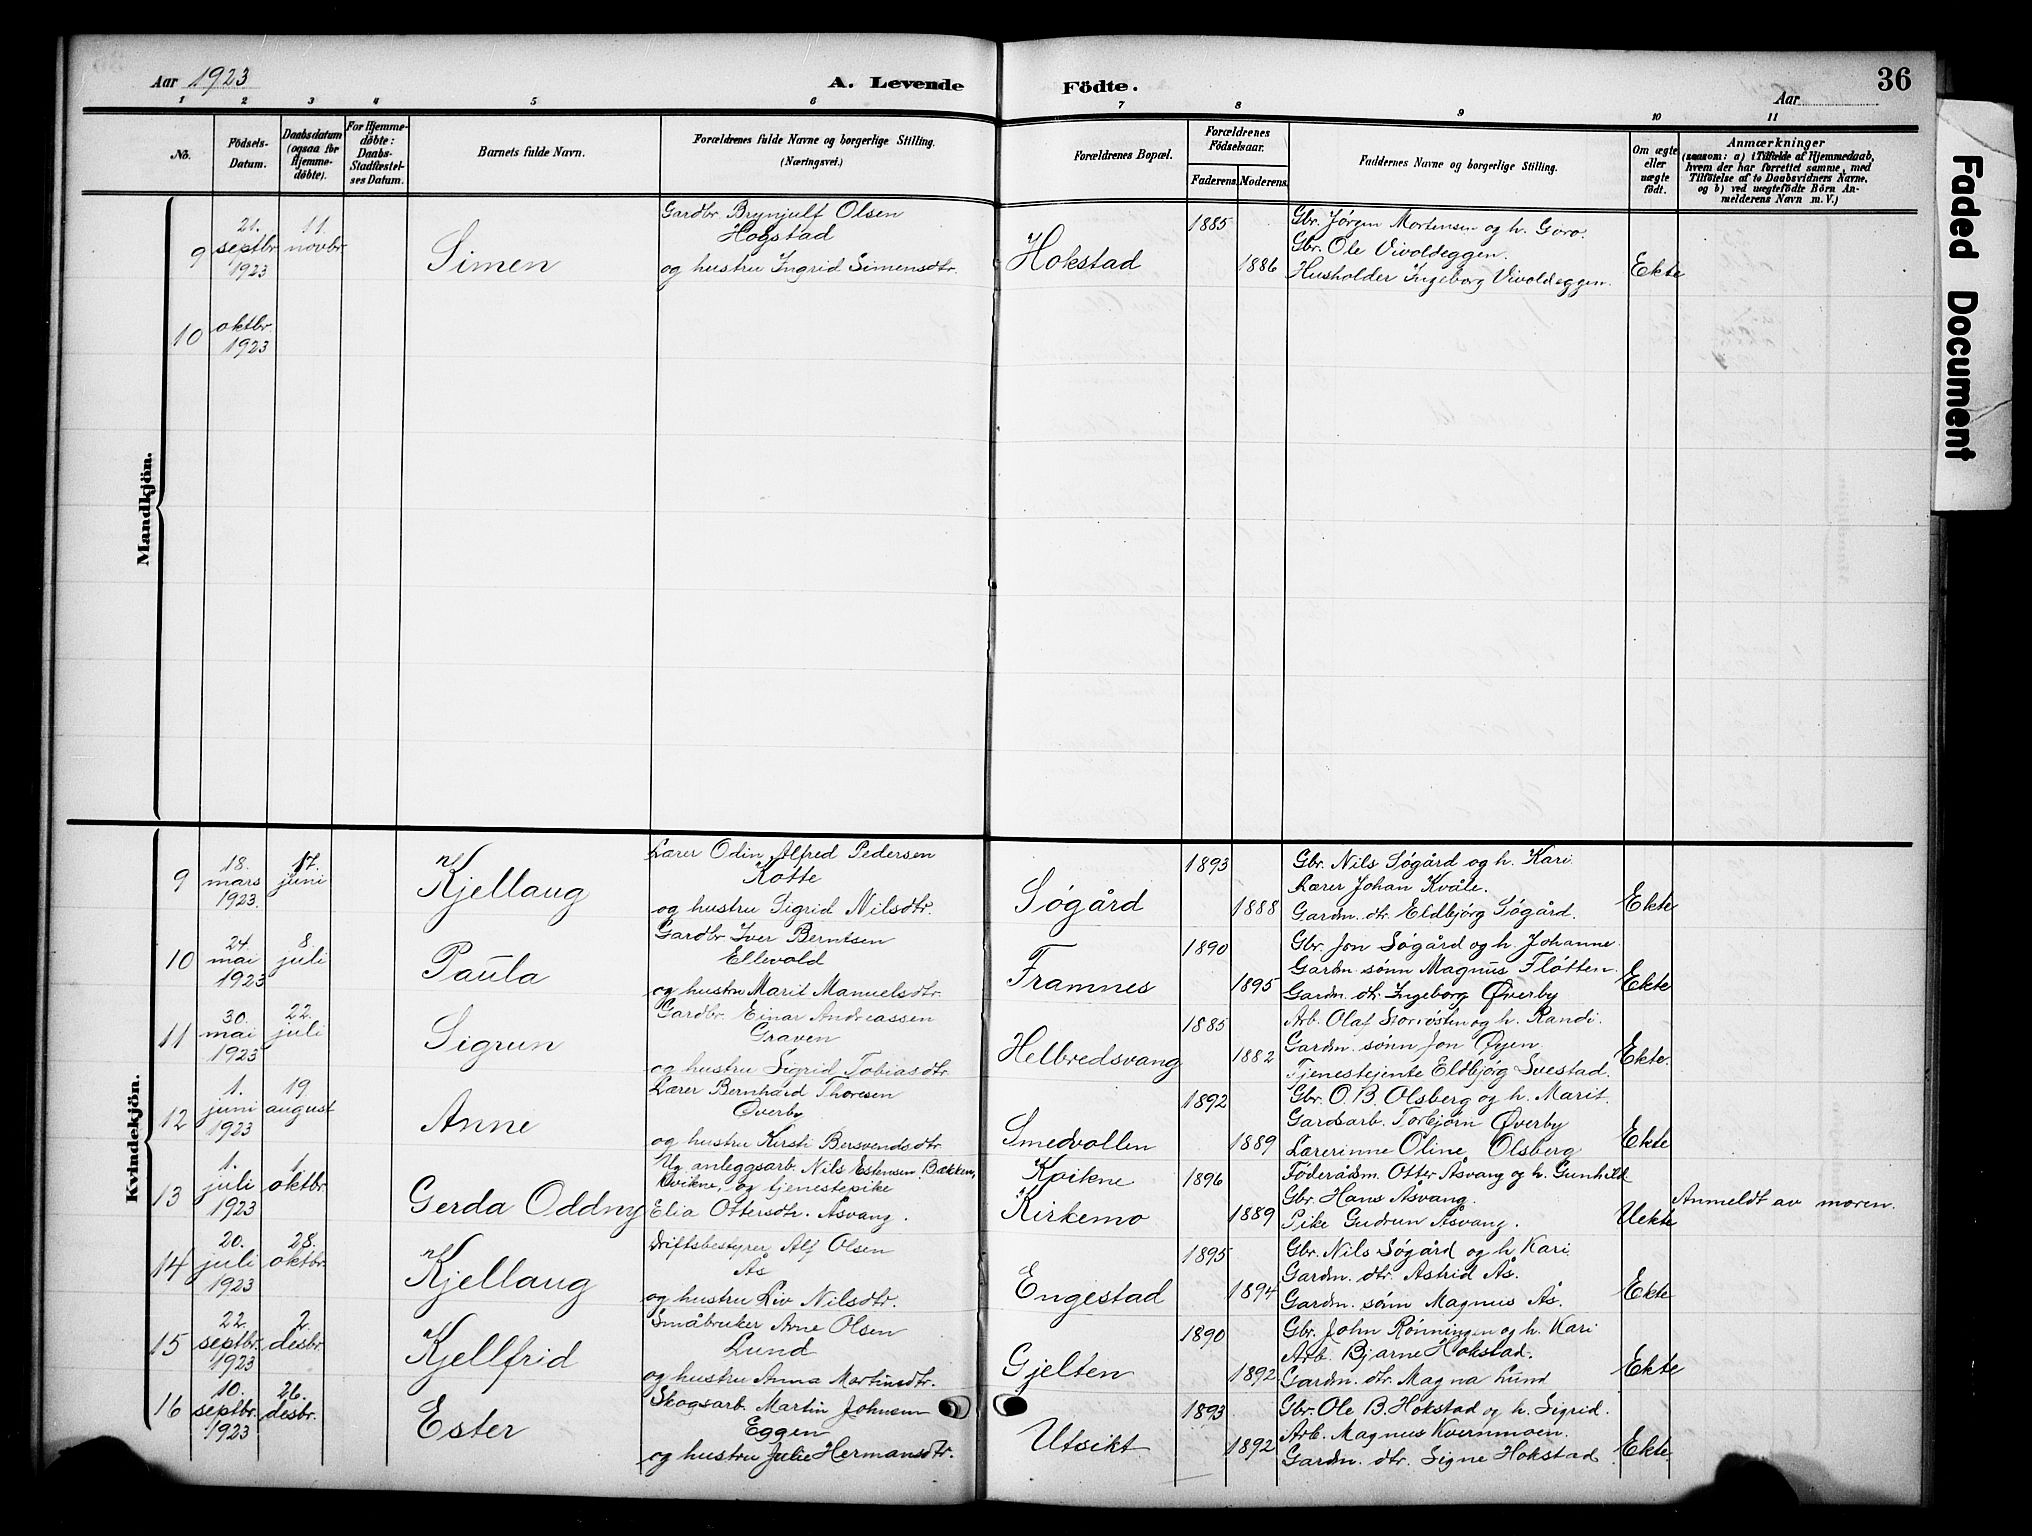 Aar 1923
A. Levende Födte.
Aar
36
Faded Document
1 2 3 4 5 6 7 8 9 10 11
No.
Födsels-
Datum.
Daabsdatum
(ogsaa for
Hjemme-
døbte).
For Hjemme-
døbte:
Daabs-
Stadfæstel-
ses Datum.
Barnets fulde Navn.
Forældrenes fulde Navne og borgerlige Stilling.
(Næringsvei.)
Forældrenes Bopæl.
Forældrenes
Födselsaar.
Faderens. Moderens.
Faddernes Navne og borgerlige Stilling.
Om ægte
eller
uægte
födt.
Anmærkninger
(saasom: a) i Tilfælde af Hjemmedaab,
hvem der har forrettet samme, med
Tilföielse af to Daabsvidners Navne,
og b) ved uægtefödte Börn An-
melderens Navn m. V.)
Mandkjön.
9
21.
septbr.
1923
11.
novbr.
Simen
Gardbr. Brynjulf Olsen
Hogstad
og hustru Ingrid Simensdtr.
Hokstad
1885
1886
Gbr. Jørgen Mortensen og h. Goro.
Gbr. Ole Vivoldeggen.
Husholder Ingeborg Vivoldeggen.
Ekte
10
oktbr.
1923
Kvindekjön.
9
18.
mars
1923.
17.
juni
Kjellaug
Lærer Odin Alfred Pedersen
Kotte
og hustru Sigrid Nilsdtr.
Søgård
1893
1888
Gbr. Nils Søgård og h. Kari.
Lærer Johan Kvåle.
Gardm. dtr. Eldbjørg Søgård.
Ekte
10
24.
mai
1923
8.
juli
Paula
Gardbr. Iver Berntsen
Ellevold
og hustru Marit Manuelsdtr.
Framnes
1890
1895
Gbr. Jon Søgård og h. Johanne.
Gardm. sønn Magnus Fløtten.
Gardm. dtr. Ingeborg Øverby
Ekte
11
30.
mai
1923
22.
juli
Sigrun
Gardbr. Einar Andreassen
Graven
og hustru Sigrid Tobiasdtr.
Helbredsvang
1885
1882
Arb. Olaf Storrøsten og h. Randi.
Gardm. sønn Jon Øyen.
Tjenestejente Eldbjørg Svestad.
Ekte.
12
1.
juni
1923
19
august
Anne
Lærer Bernhard Thoresen
Øverby
og hustru Kirsti Bersvendsdtr.
Smedvollen
1892
1889
Gbr. O. B. Olsberg og h. Marit.
Gardsarb. Torbjørn Øverby
Lærerinne Oline Olsberg
Ekte
13
1.
juli
1923
1.
oktbr.
Gerda Oddny
Ug. anleggsarb. Nils Estensen Bakken,
Kvikne, og tjenestepike
Elia Ottersdtr. Åsvang.
Kvikne
Kirkemo
1896
1889
Føderådsm. Otter Åsvang og h. Gunhild
Gbr. Hans Åsvang.
Pike Gudrun Åsvang.
Uekte
Anmeldt av moren.
14
20.
juli
1923
28.
oktbr.
Kjellaug
Driftsbestyrer Alf Olsen
Ås
og hustru Liv Nilsdtr.
Engestad
1895
1894
Gbr. Nils Søgård og h Kari
Gardm. dtr. Astrid Ås.
Gardm. sønn Magnus Ås.
Ekte
15
22.
septbr.
1923
2.
desbr.
Kjellfrid
Småbruker Arne Olsen
Lund
og hustru Anna Martinsdtr.
Gjelten
1890
1892
Gbr. John Rønningen og h. Kari
Arb. Bjarne Hokstad.
Gardm. dtr. Magna Lund
Ekte
16
10.
septbr.
1923
26.
desbr.
Ester
Skogsarb. Martin Johnsen
Eggen
og hustru Julie Hermansdtr.
Utsikt
1893
1892
Gbr. Ole B. Hokstad og h. Sigrid.
Arb. Magnus Kvernmoen.
Gardm. dtr. Signe Hokstad
Ekte